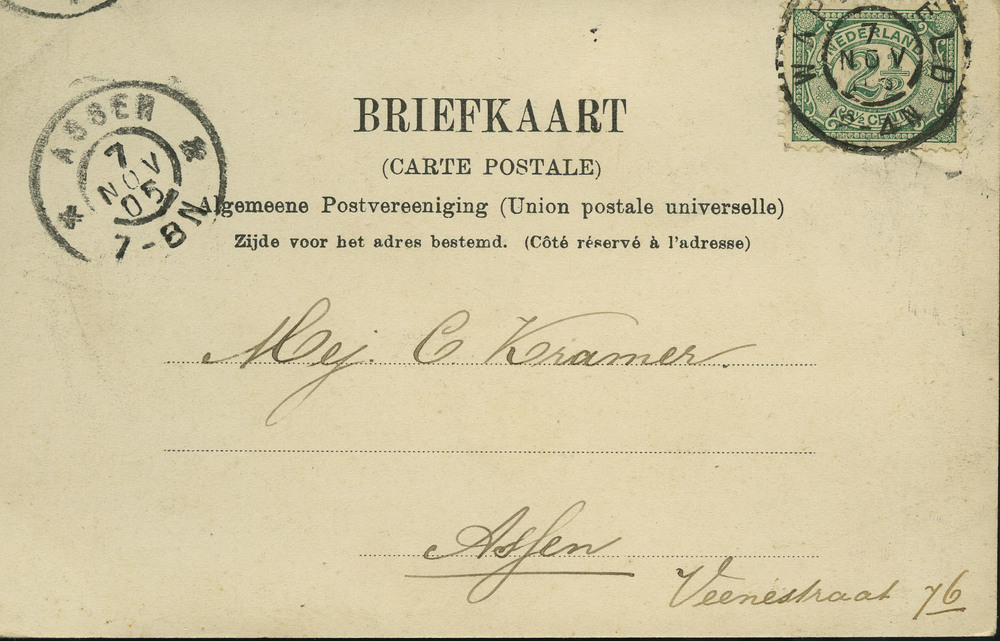 BRIEFKAART
(CARTE POSTALE)
Algemeene Postvereeniging (Union postale universelle)
Zijde voor het adres bestemd. (Côté réservé à l'adresse)
ASSEN
7
NOV
05
7-8N
NEDERLAND
2½
2½ CENT
7
NOV
Mej. C Kramer.
Assen
Veenestraat 76